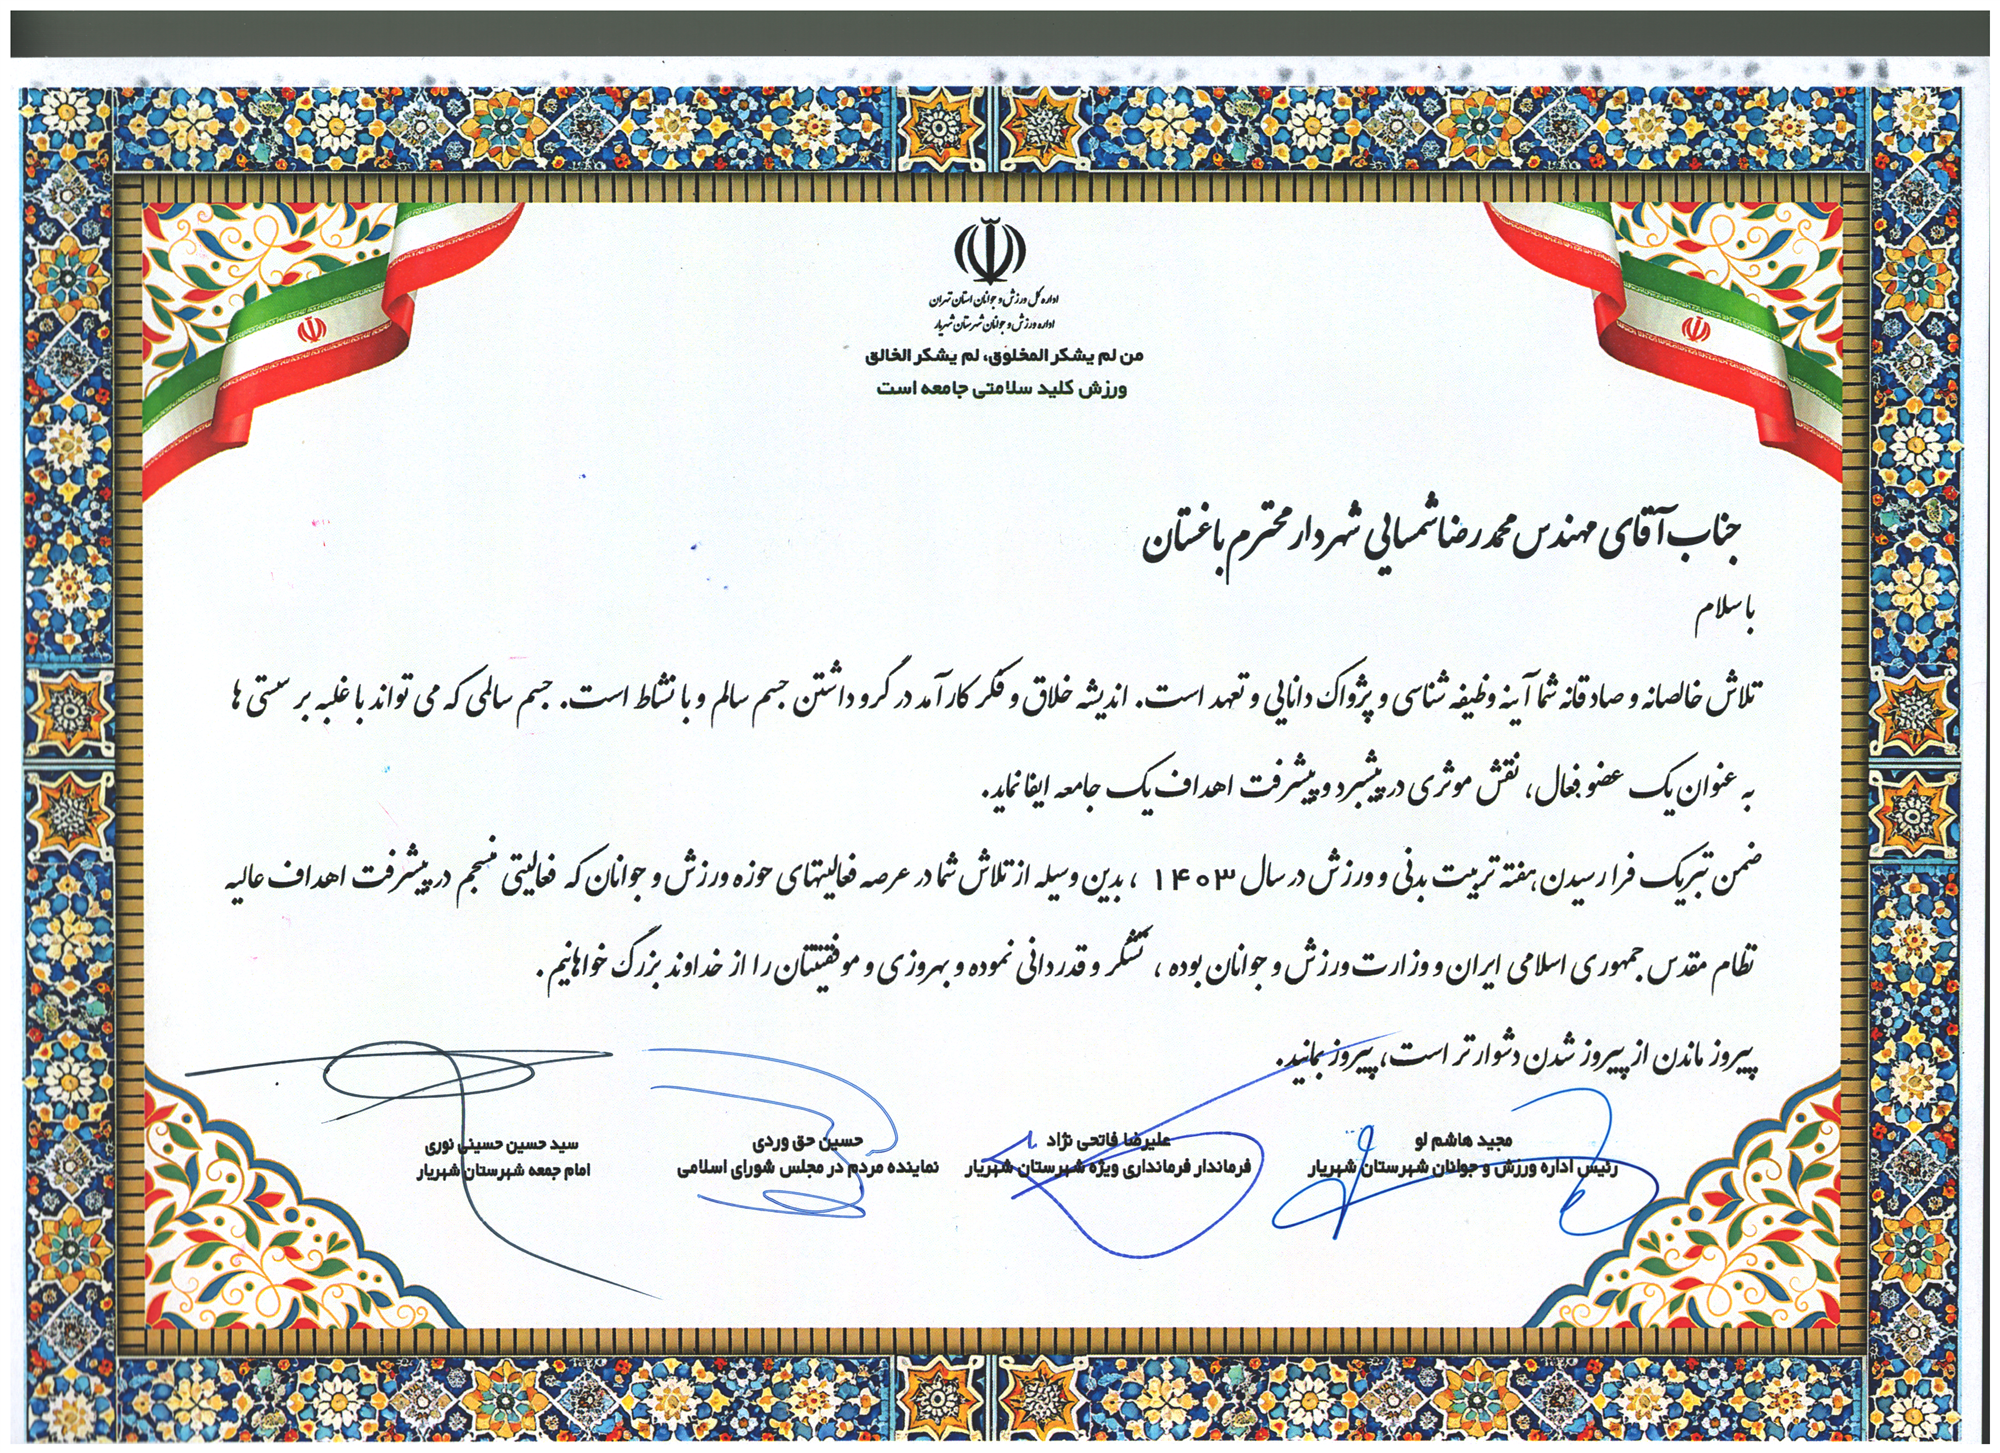 اداره کل ورزش و جوانان استان تهران
اداره ورزش و جوانان شهرستان شهریار
من لم یشکر المخلوق، لم یشکر الخالق
ورزش کلید سلامتی جامعه است
جناب آقای مهندس محمدرضا شمسایی شهردار محترم باغستان
با سلام
تلاش خالصانه و صادقانه شما آینه وظیفه شناسی و پژواک دانایی و تعهد است. اندیشه خلاق و فکر کارآمد در گرو داشتن جسم سالم و با نشاط است. جسم سالمی که می تواند با غلبه بر سستی ها
به عنوان یک عضو فعال، نقش موثری در پیشبرد و پیشرفت اهداف یک جامعه ایفا نماید.
ضمن تبریک فرا رسیدن هفته تربیت بدنی و ورزش در سال ۱۴۰۳ ، بدین وسیله از تلاش شما در عرصه فعالیتهای حوزه ورزش و جوانان که فعالیتی منسجم در پیشرفت اهداف عالیه
نظام مقدس جمهوری اسلامی ایران و وزارت ورزش و جوانان بوده ، تشکر و قدردانی نموده و بهروزی و موفقیتتان را از خداوند بزرگ خواهانیم .
پیروز ماندن از پیروز شدن دشوارتر است، پیروز بمانید.
مجید هاشم لو
رئیس اداره ورزش و جوانان شهرستان شهریار
علیرضا فاتحی نژاد
فرماندار فرمانداری ویژه شهرستان شهریار
حسین حق وردی
نماینده مردم در مجلس شورای اسلامی
سید حسین حسینی نوری
امام جمعه شهرستان شهریار